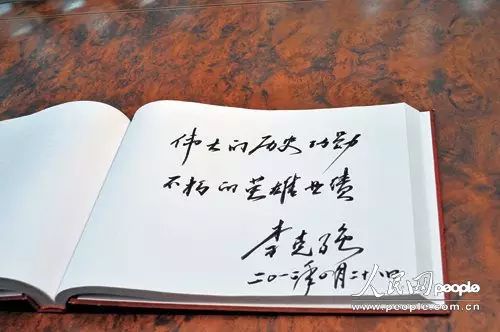 伟大的历史功勋
不朽的英雄业绩
李克强
二〇一二年四月二十
人民网 people
www.people.com.cn